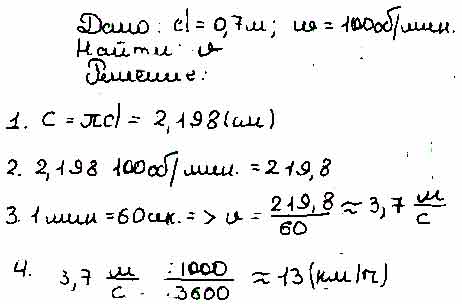 Дано: d = 0,7м; ω = 100об/мин.
Найти: v
Решение:
1. C = πd = 2,198(м)
2. 2,198 100об/мин. = 219,8
3. 1 мин = 60сек. => v = 219,8/60 ≈ 3,7 м/с
4. 3,7 м/с :1000/·3600 ≈ 13(км/ч)